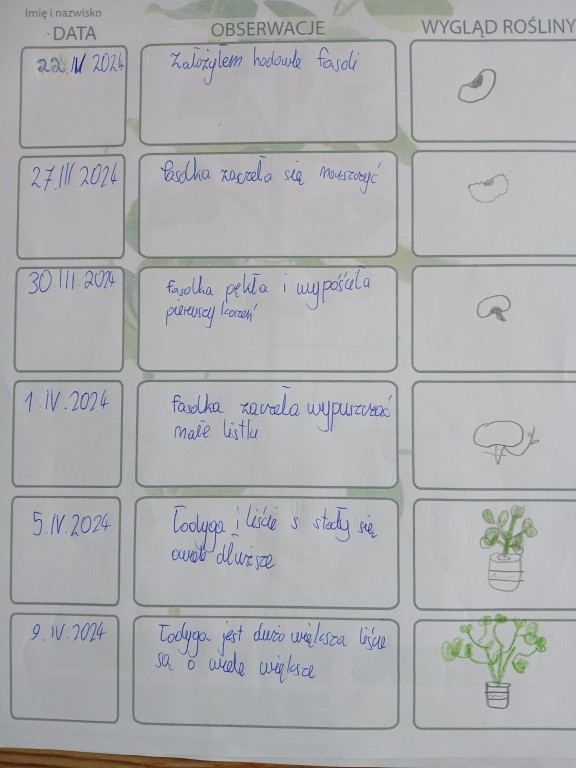 Imię i nazwisko
DATA
OBSERWACJE
WYGLĄD ROŚLINY
22.III 2024
Założyłem hodowle fasoli
27.III.2024
fasolka zaczeła się
30 III.2024
fasolka pękła i wypóściła
pierwszy korzeń
1.IV.2024
fasolka zaczeła wypuszczać
małe listki
5.IV.2024
Łodyga i liście s stały się
dłuższe
9.IV.2024
Łodyga jest dużo większa liście
są o wiele większe